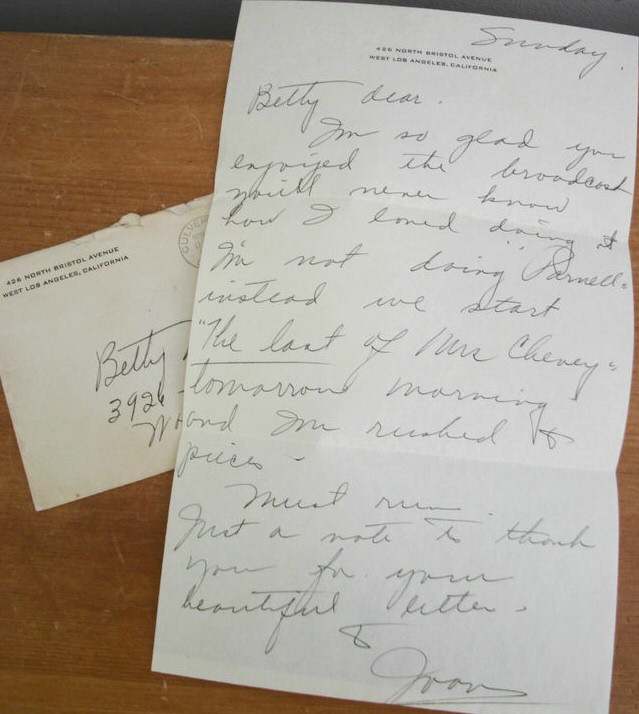 426 NORTH BRISTOL AVENUE
WEST LOS ANGELES, CALIFORNIA
Sunday.
Betty dear.
I'm so glad you
enjoyed the broadcast
you'll never know
how I loved doing it
I'm not doing "Parnell"
instead we start
"The last of Mrs Cheney"
tomorrow morning
and I'm rushed to
pieces -
Must run.
Just a note to thank
you for your
beautiful letter -
Joan
426 NORTH BRISTOL AVENUE
WEST LOS ANGELES, CALIFORNIA
CULVER
Betty
3926